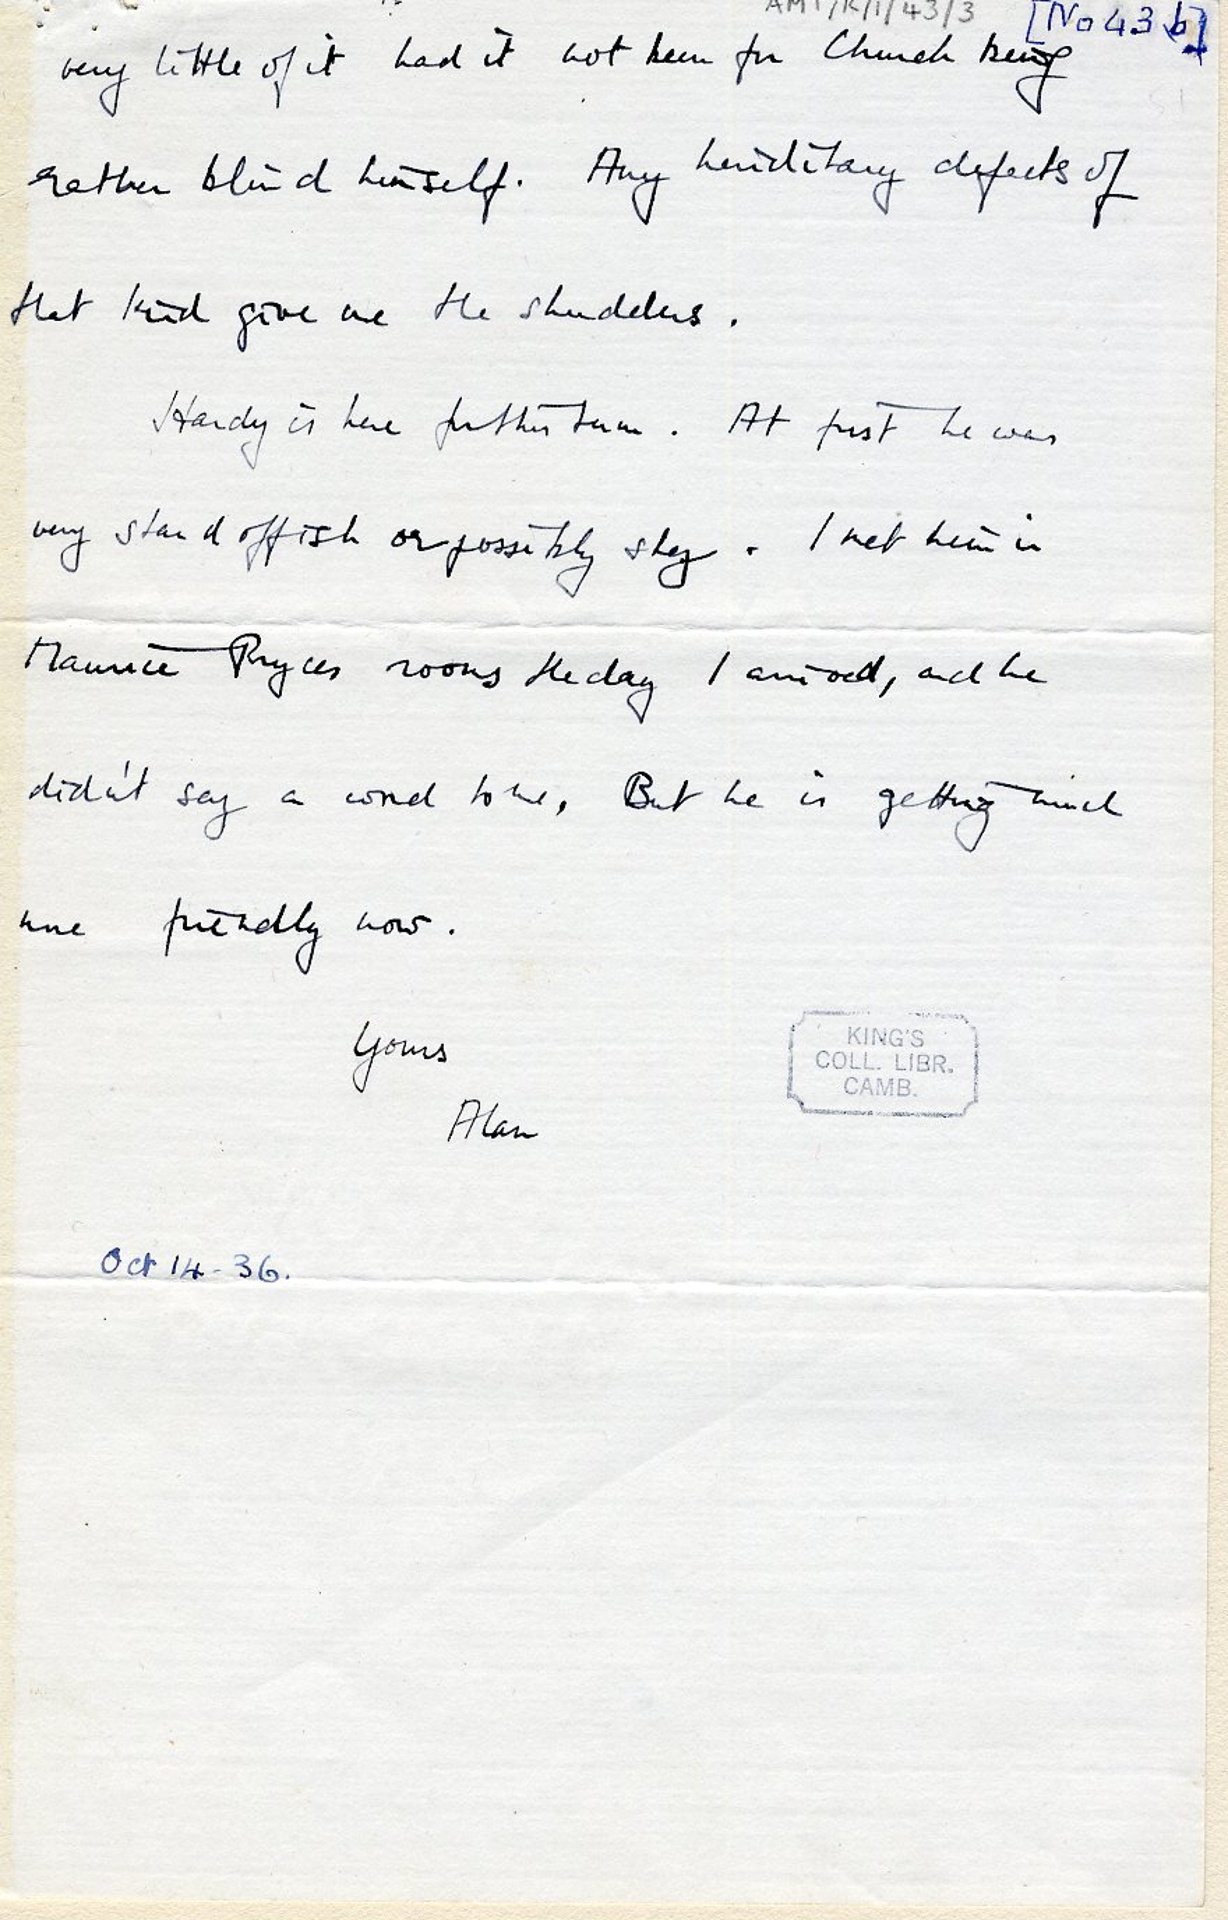 AMT/K/1/43/3
[No 43 b]
51
very little of it had it not been for Church being
rather blind himself. Any heriditary defects of
that kind give me the shudders.
Hardy is here for this term. At first he was
very standoffish or possibly shy. I met him in
Maurice Pryces rooms the day I arrived, and he
didn't say a word to me. But he is getting much
more friendly now.
Yours
Alan
KING'S
COLL. LIBR.
CAMB.
Oct 14-36.